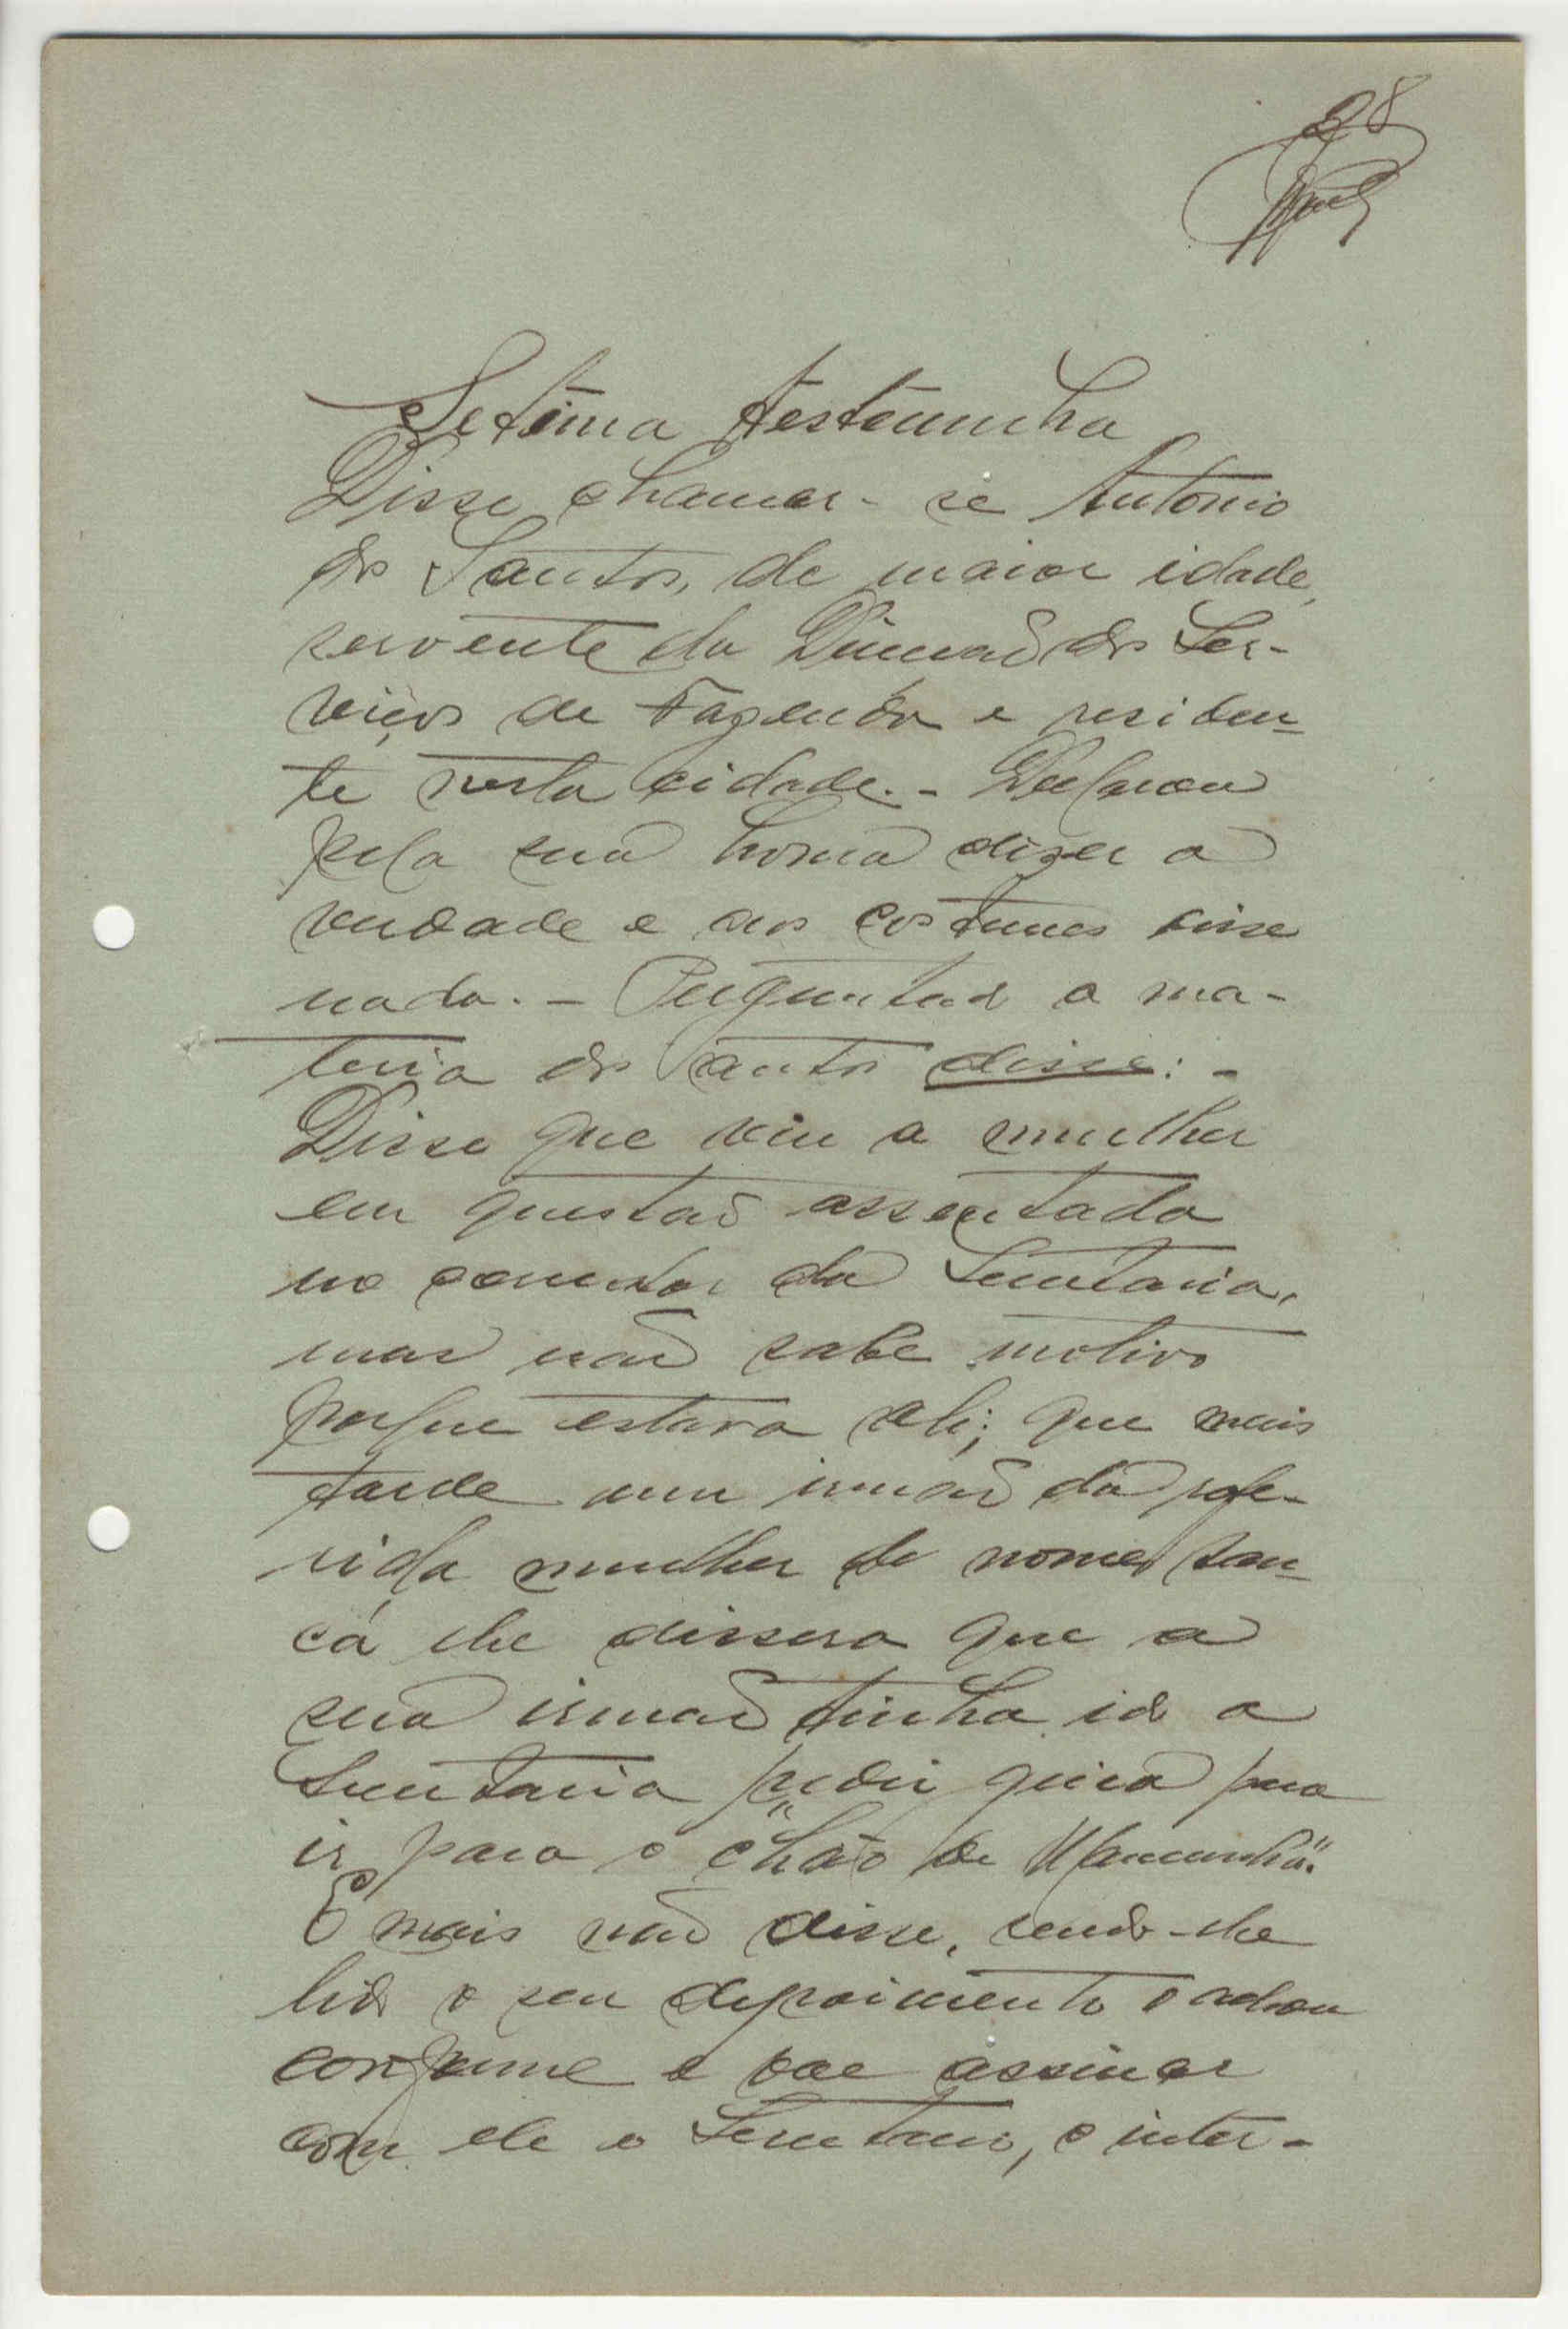 28
Setima testemunha
Disse chamar-se Antonio
dos Santos, de maior idade,
servente da Direcção dos Ser-
viços de Fazenda e residen-
te nesta cidade. - Declarou
pela sua honra dizer a
verdade e aos costumes disse
nada. - Perguntado a ma-
teria dos autos disse: -
Disse que viu a mulher
em questão assentada
no corredor da Secretaria,
mas não sabe motivo
porque estava ali; que mais
tarde um irmão da refe-
rida mulher de nome
lhe dissera que a
sua irmã tinha ido a
Secretaria pedir guia para
ir para o "Chão de
E mais não disse, sendo-lhe
lido o seu depoimento o achou
conforme e vae assinar
com ele o Secretario, o inter-